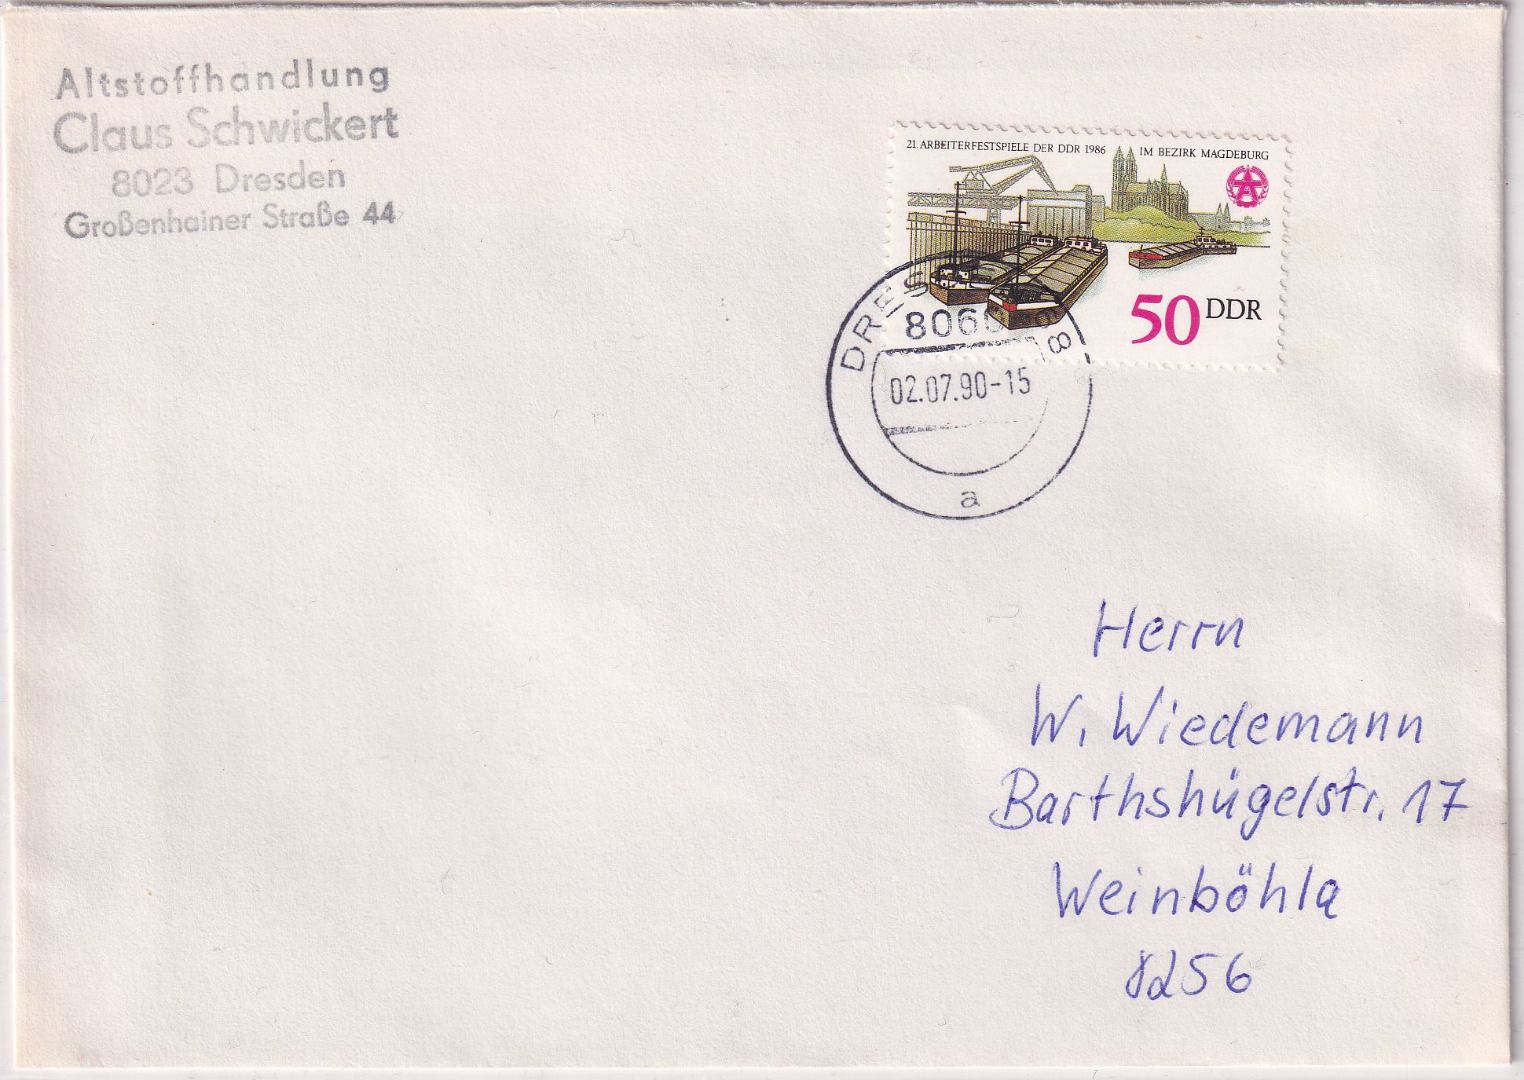 Altstoffhandlung
Claus Schwickert
8023 Dresden
Großenhainer Straße 44
21. ARBEITERFESTSPIELE DER DDR 1986 IM BEZIRK MAGDEBURG
50 DDR
8060
8
02.07.90-15
a
Herrn
W. Wiedemann
Barthshügelstr. 17
Weinböhla
8256